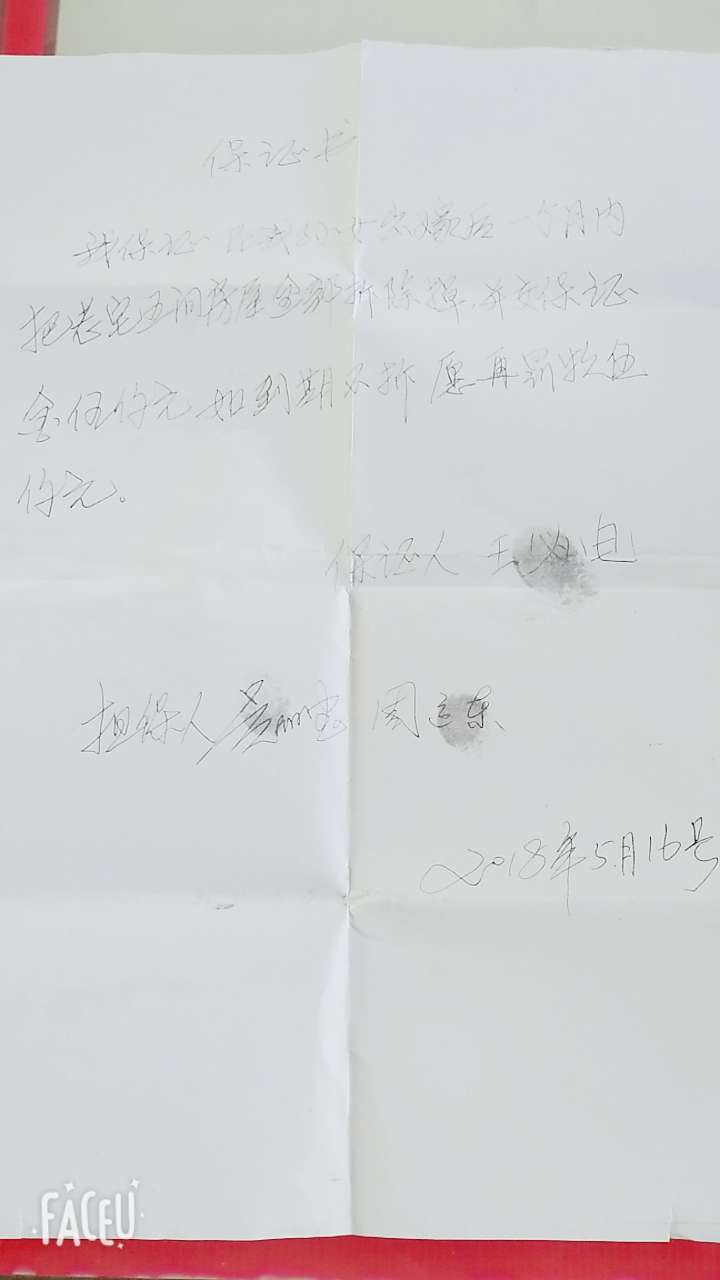 保证书
我保证在我的女儿嫁后一个月内
把老宅五间房屋全部拆除掉,并交保证
金伍仟元如到期不拆愿再罚款伍
仟元。
保证人 王
担保人 周
2018年5月16号
FACEU